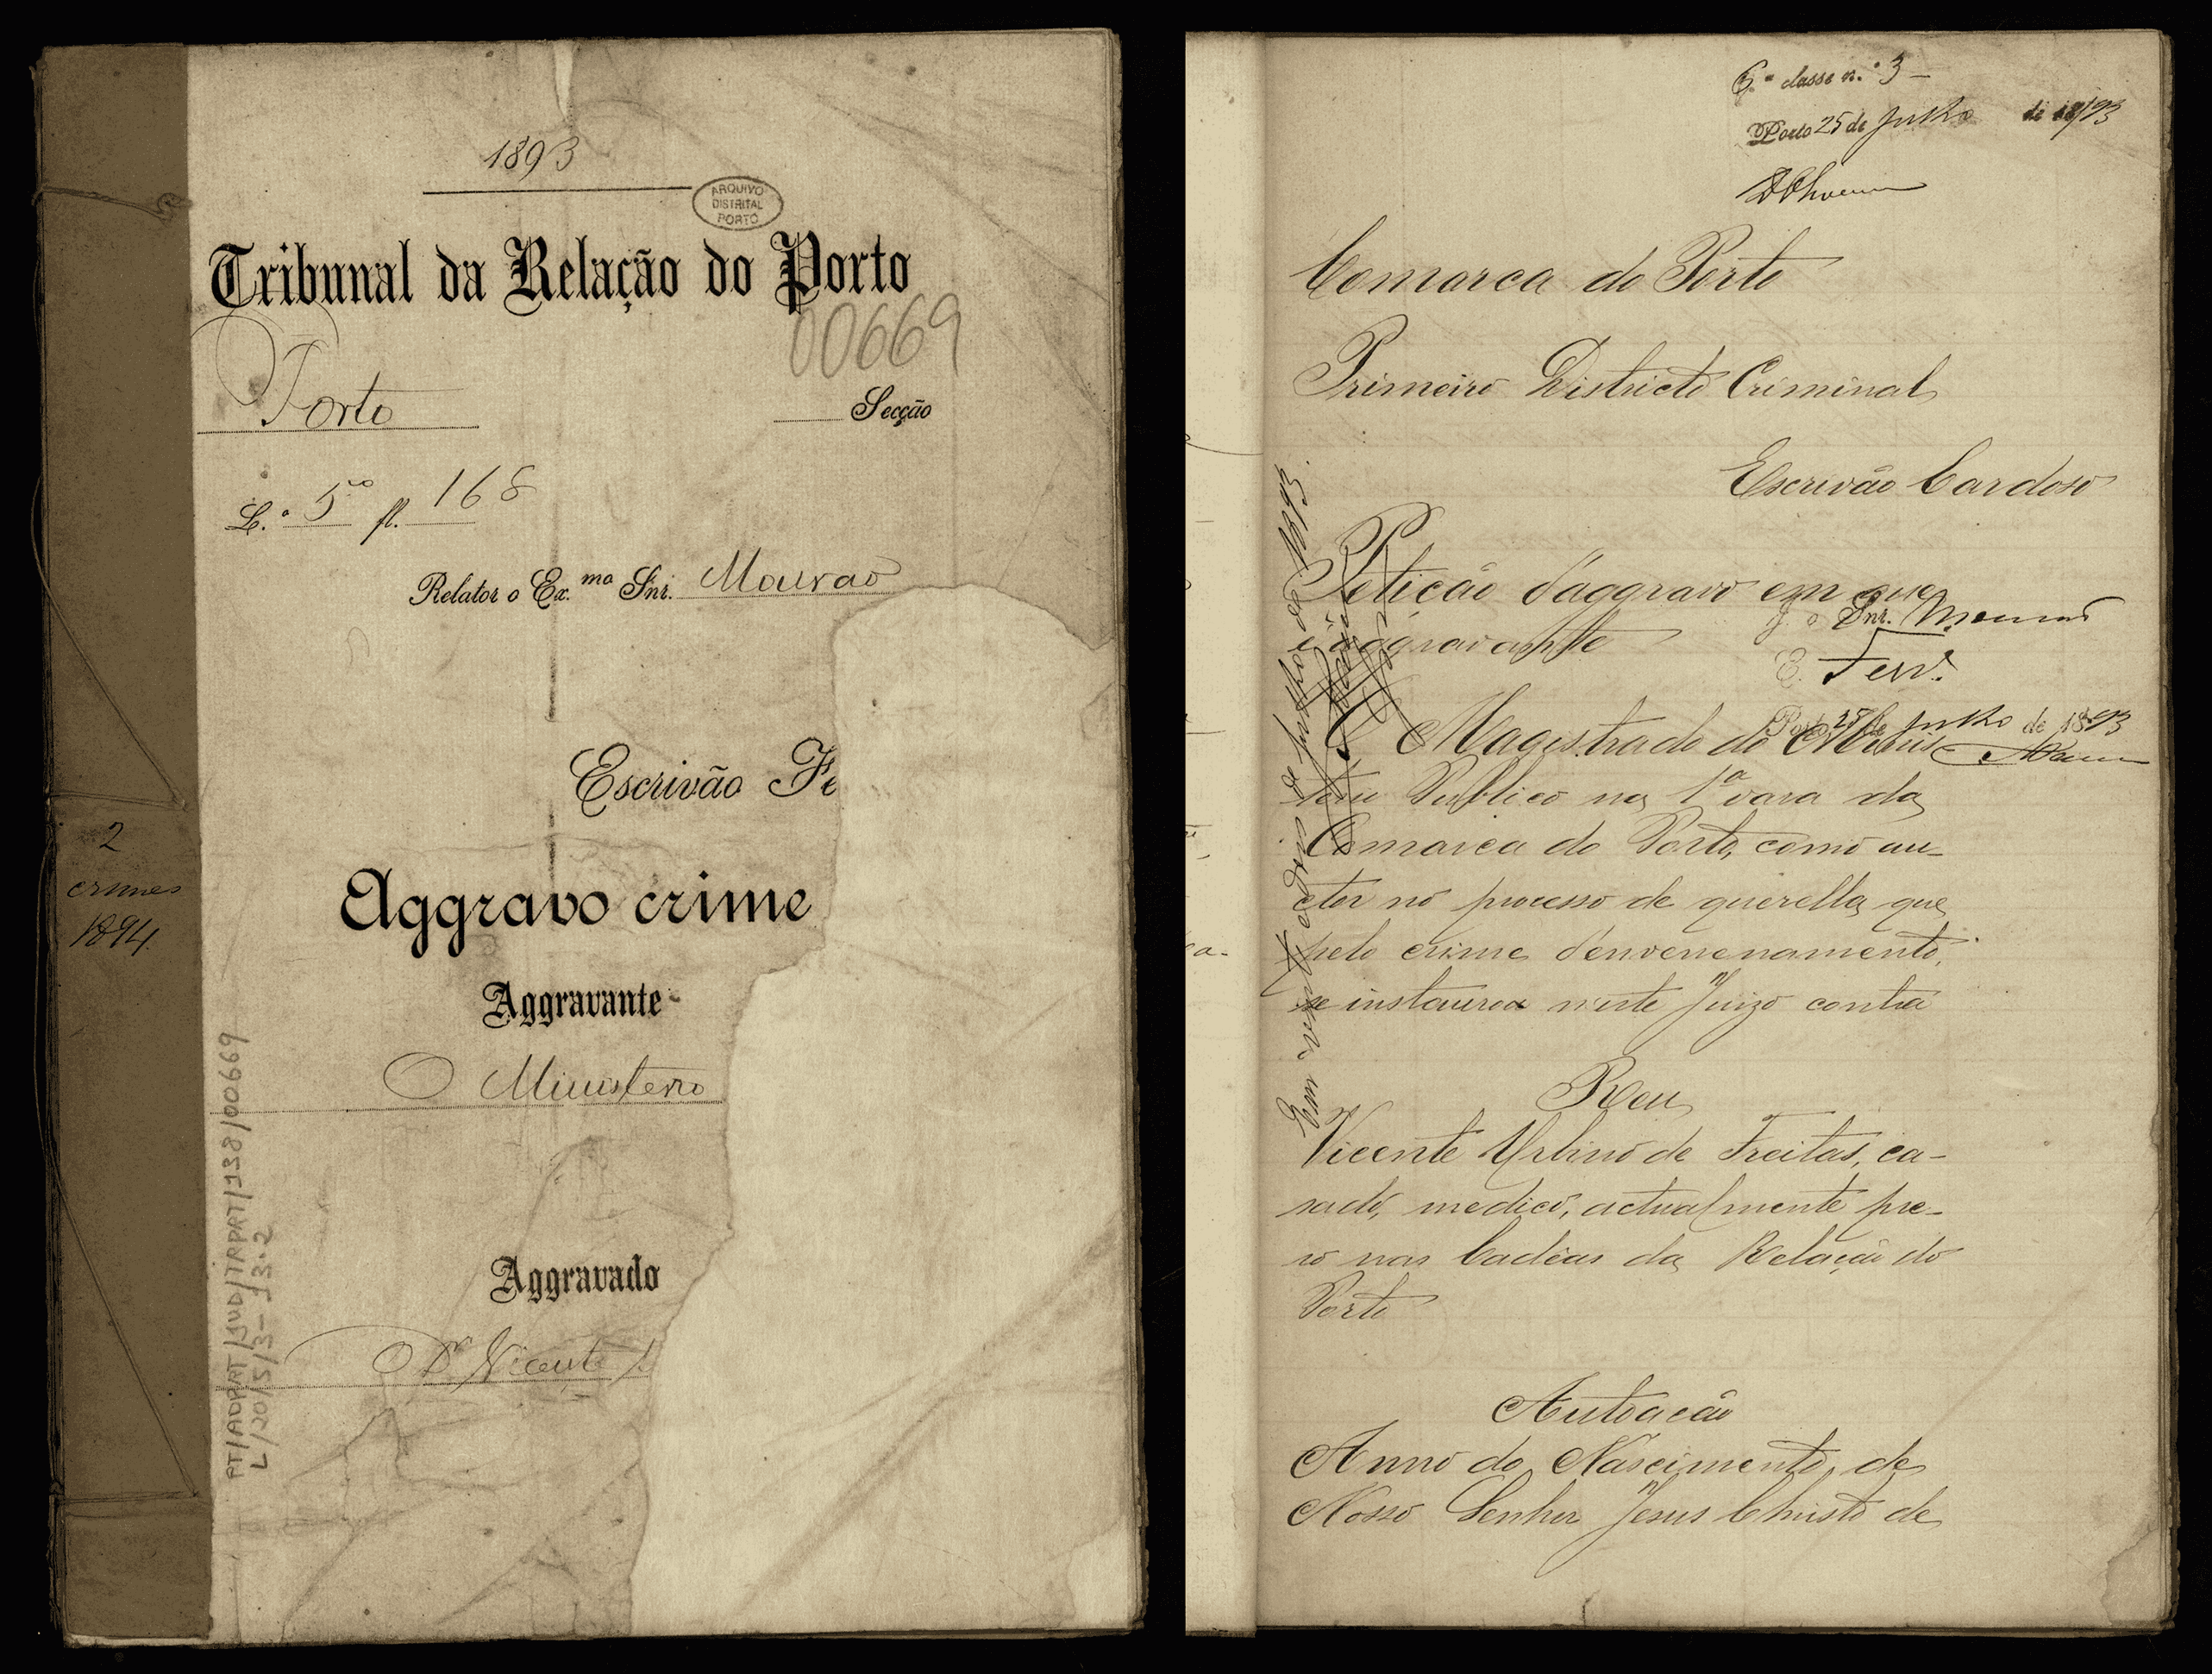 1893
ARQUIVO
DISTRITAL
PORTO
Tribunal da Relação do Porto
00669
Porto
Secção
L.º 5º fl. 168
Relator o Ex.mo Snr. Mourão
Escrivão Fe
Aggravo crime
Aggravante
O Ministerio
Aggravado
O Dr Vicente
2
crimes
1894.
PT/ADPRT/JUD/TRPRT/138/00669
L/20/5/3-13.2
6.ª classe n.º 3
Porto 25 de Julho de 1893
Comarca do Porto
Primeiro Districto Criminal
Escrivão Cardoso
Petição d'aggravo em que
é aggravante
J. o Snr. Mourão
E. Ferr.ª
Porto 25 de Julho de 1893
O Magistrado do Minis
terio Publico na 1ª vara da
Comarca do Porto, como au-
ctor no processo de querella que
pelo crime d'envenenamento,
se instaurou n'este Juizo contra
Reu
Vicente Urbino de Freitas, ca-
sado, medico, actualmente pre-
so nas Cadêas da Relação do
Porto
Autoação
Anno do Nascimento de
Nosso Senhor Jesus Christo de
Em vinte e quatro de Julho de 1893.